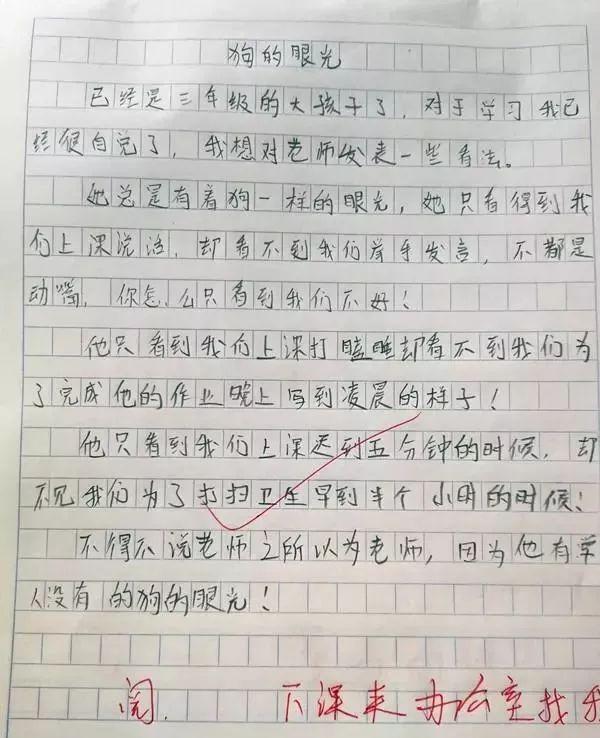 狗的眼光
已经是三年级的大孩子了,对于学习我已
经很自觉了,我想对老师发表一些看法。
她总是有着狗一样的眼光,她只看得到我
们上课说话,却看不到我们举手发言,不都是
动嘴,你怎么只看到我们不好!
他只看到我们上课打瞌睡却看不到我们为
了完成他的作业晚上写到凌晨的样子!
他只看到我们上课迟到五分钟的时候,却
不见我们为了打扫卫生早到半个小时的时候!
不得不说老师之所以为老师,因为他有常
人没有的狗的眼光!
阅. 下课来办公室找我